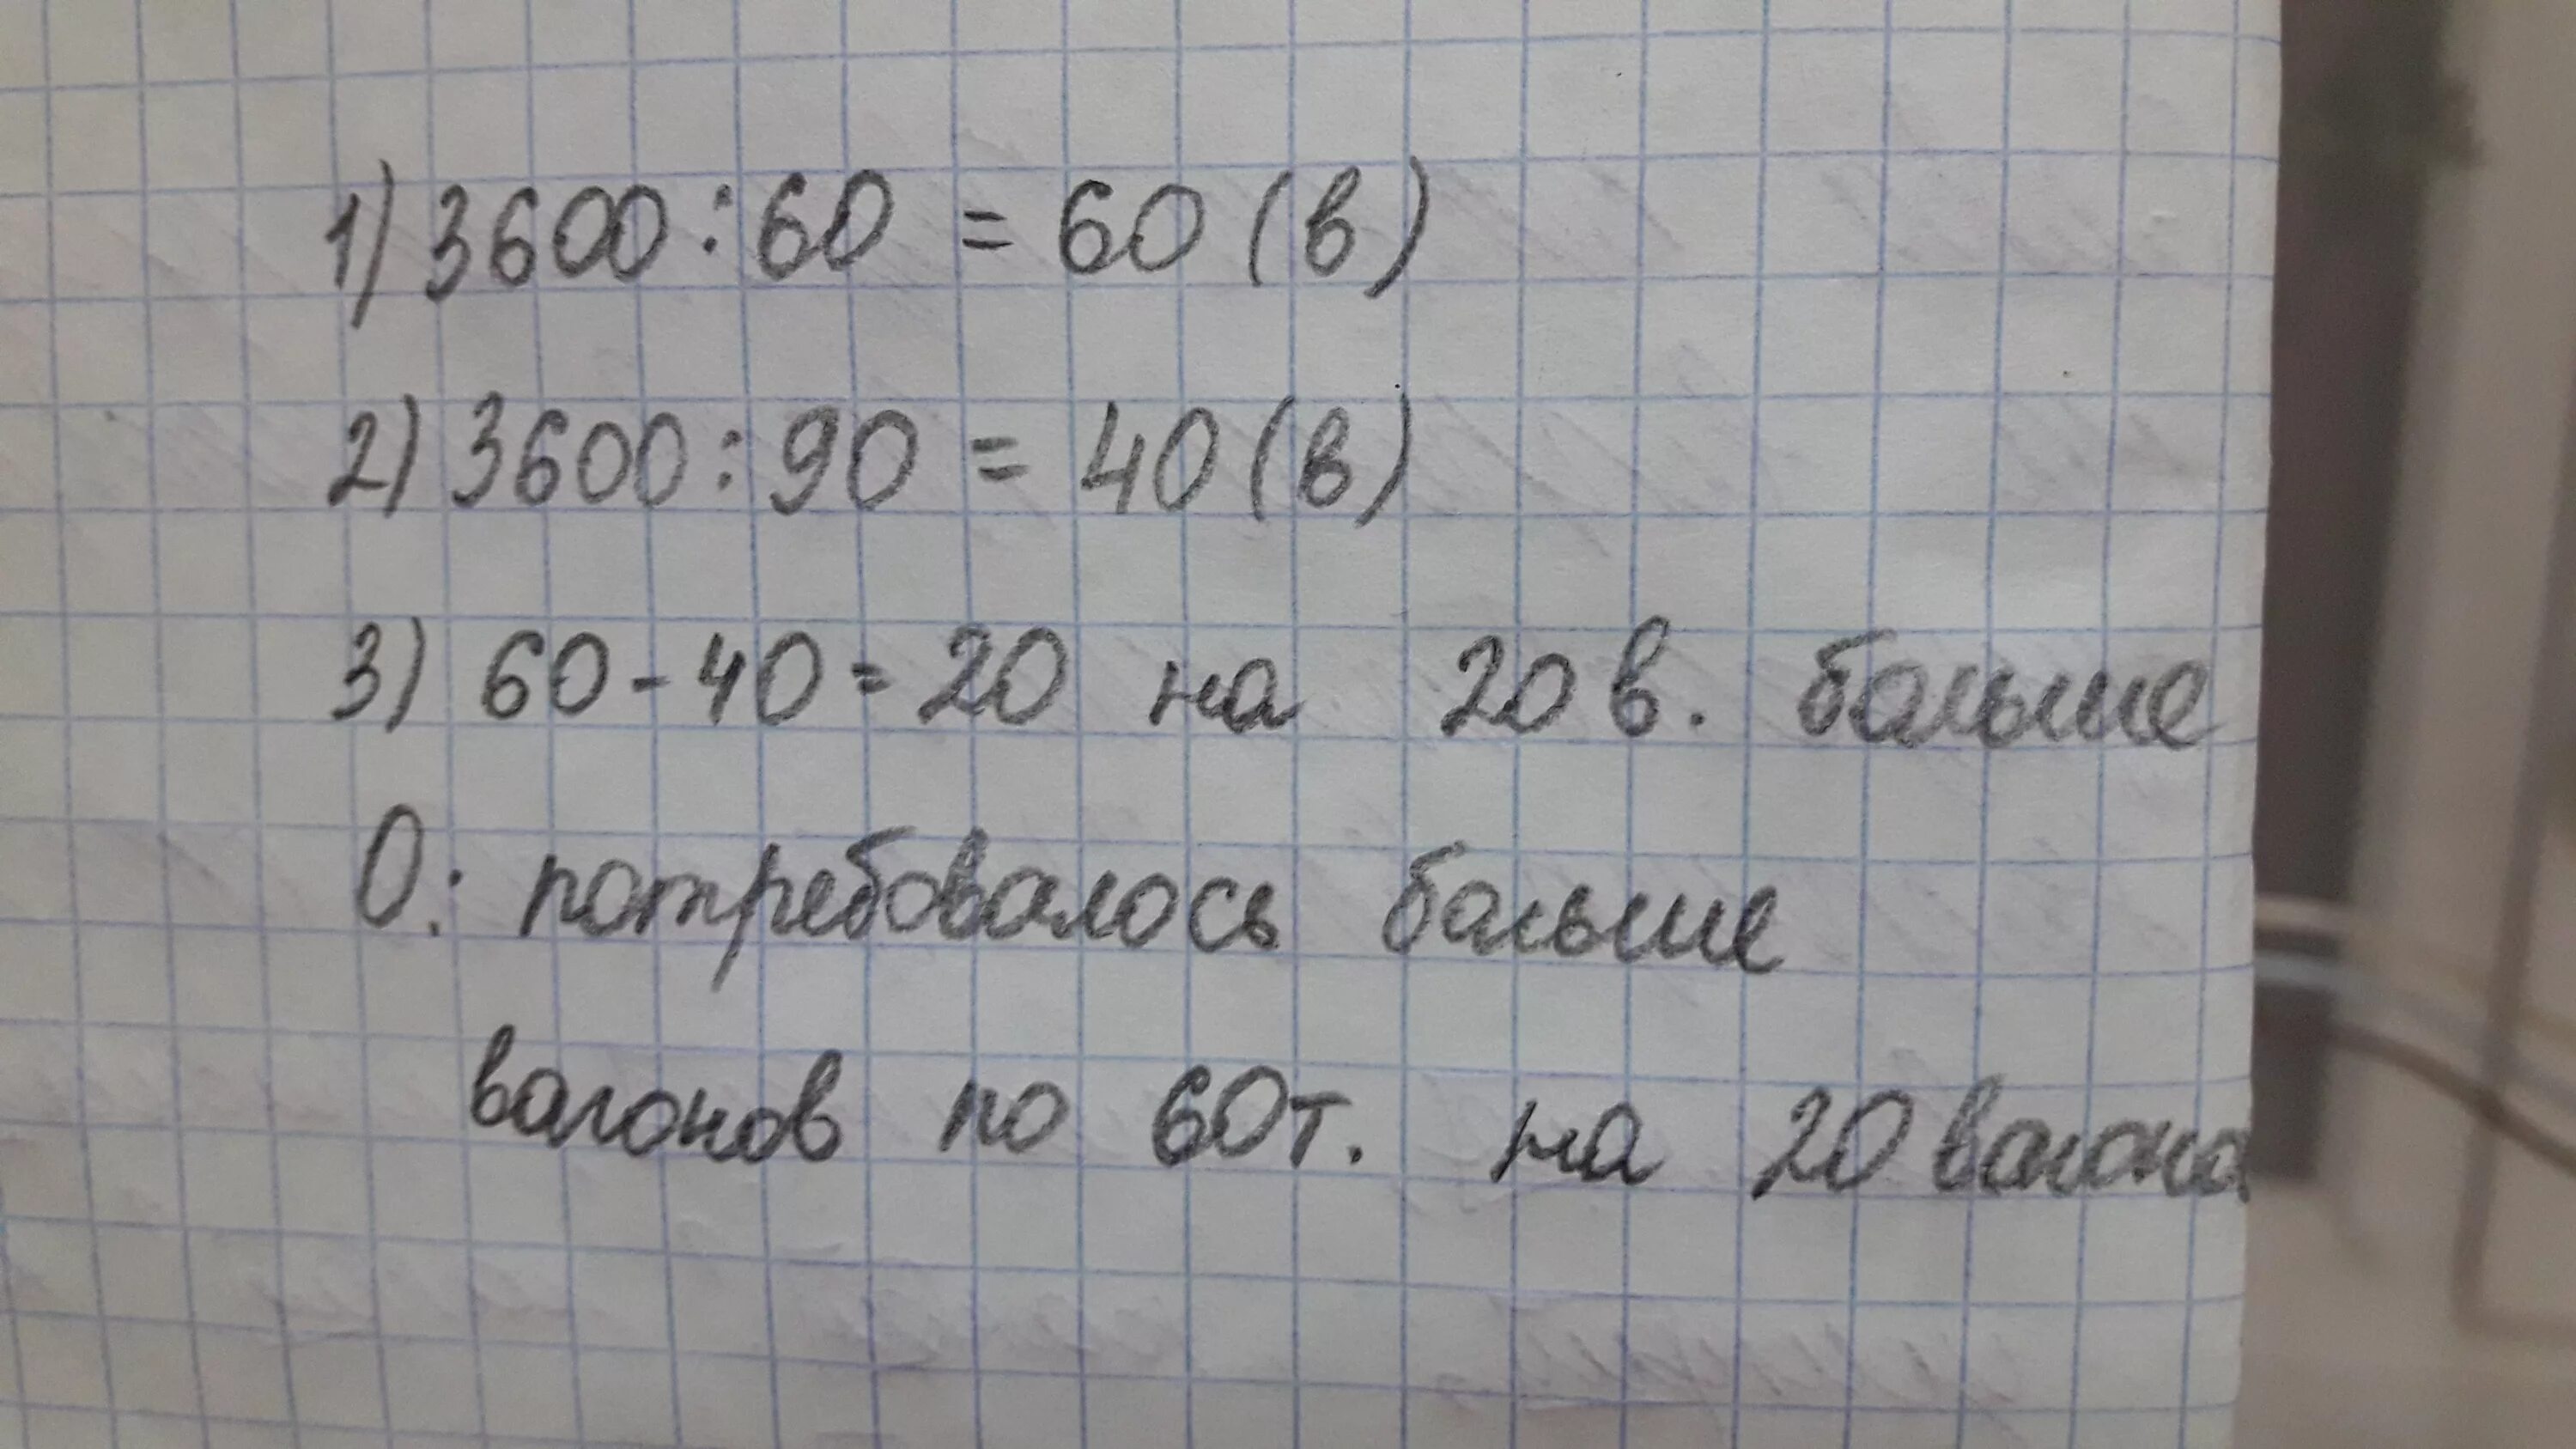 1) 3600 : 60 = 60 (в)
2) 3600 : 90 = 40 (в)
3) 60 - 40 = 20 на 20 в. больше
О: потребовалось больше
вагонов по 60т. на 20 вагона